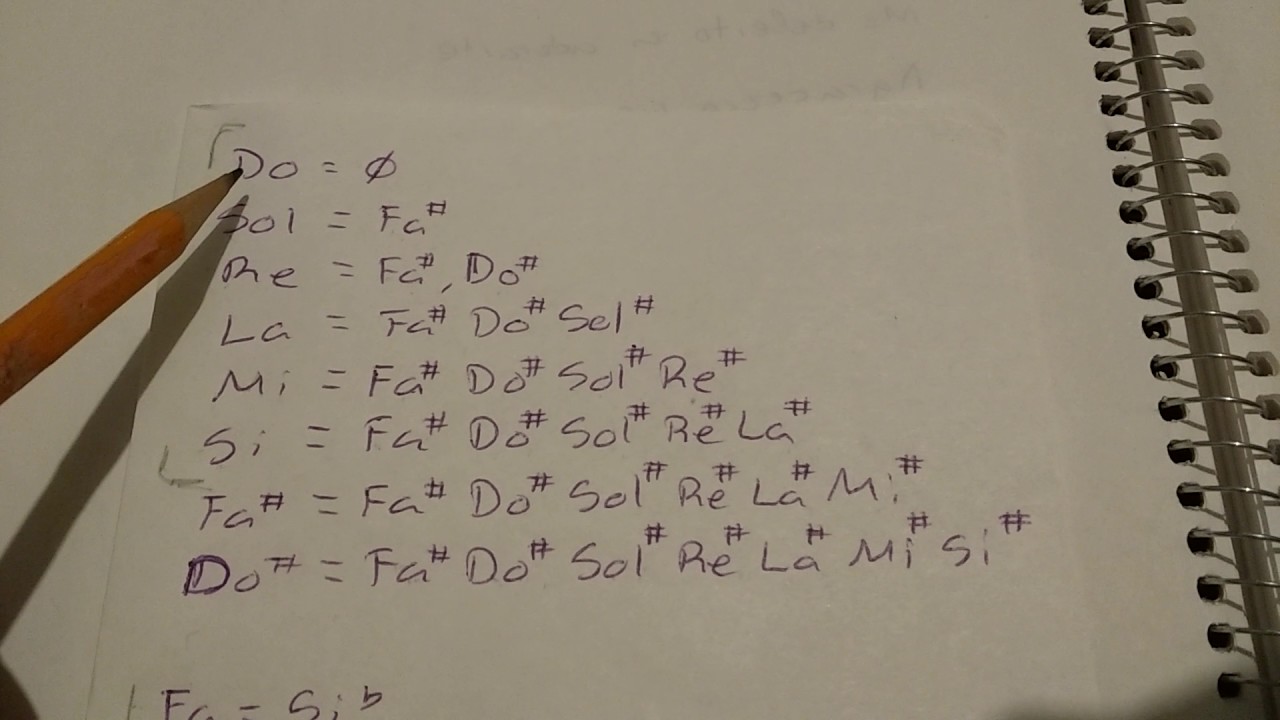 Do = ∅
Sol = Fa#
Re = Fa#, Do#
La = Fa# Do# Sol#
Mi = Fa# Do# Sol# Re#
Si = Fa# Do# Sol# Re# La#
Fa# = Fa# Do# Sol# Re# La# Mi#
Do# = Fa# Do# Sol# Re# La# Mi# Si#
Fa = Si b